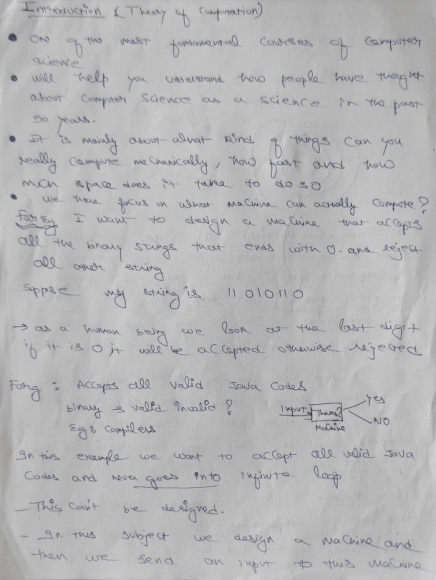 Introduction (Theory of Computation)
• One of the most fundamental courses of Computer
science
• will help you understand how people have thought
about Computer Science as a science in the past
50 years.
• It is mainly about what kind of things can you
really compute mechanically, how fast and how
much space does it take to do so
• we have focus on what machine can actually compute?
For eg I want to design a machine that accepts
all the binary strings that ends with 0. and reject
all other string
sppse my string is 11010110
→ as a human being we look at the last digit
if it is 0 it will be accepted otherwise rejected
For eg : Accepts all valid Java Codes
binary → valid invalid ?
Egs Compilers
Input
Machine
Yes
NO
In this example we want to accept all valid Java
Codes and never goes into infinite loop
- This Can't be designed.
- In this subject we design a machine and
then we send an input to this machine